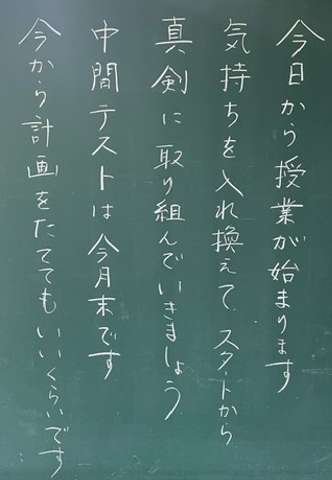 今日から授業が始まります
気持ちを入れ換えて、スタートから
真剣に取り組んでいきましょう
中間テストは今月末です
今から計画をたててもいいくらいです